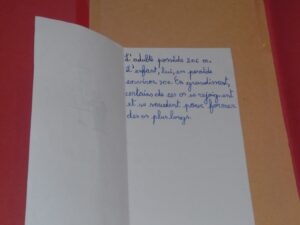 L'adulte possède 206 os.
L'enfant, lui, en possède
environ 300. En grandissant,
certains de ces os se rejoignent
et se soudent pour former
des os plus longs.